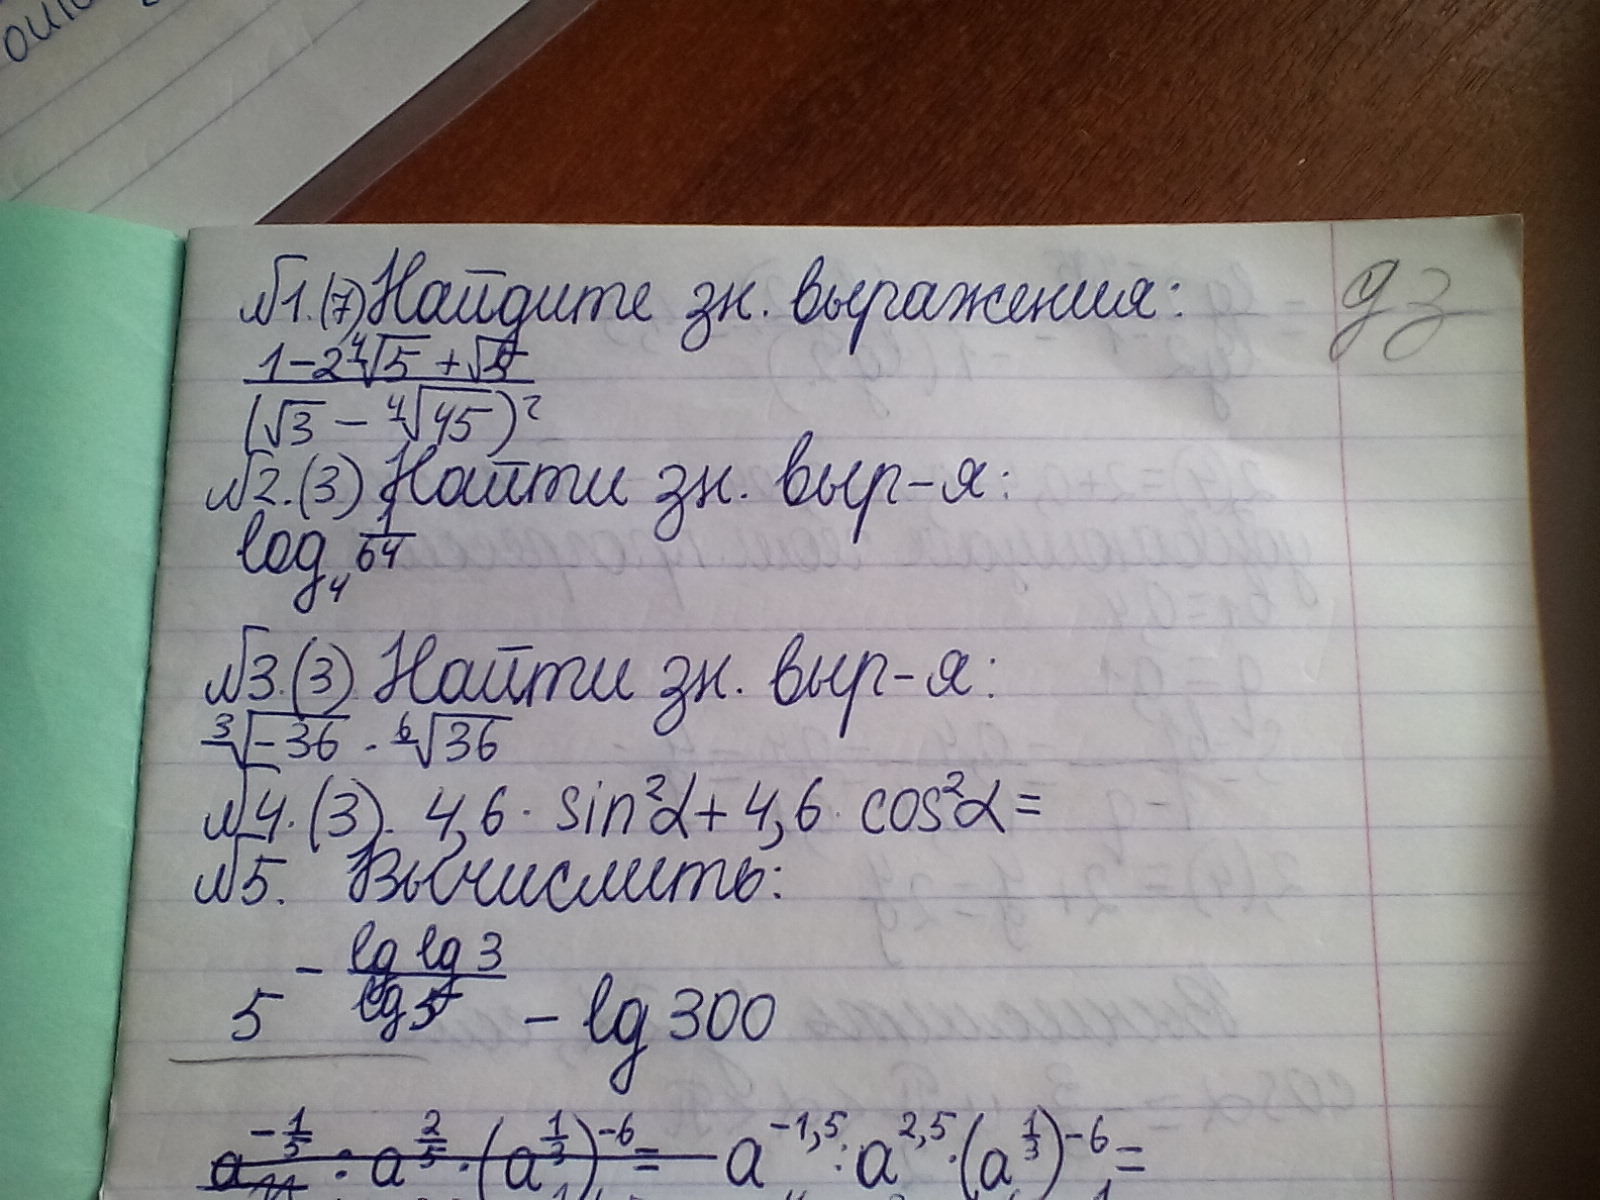 №1.(7) Найдите зн. выражения: дз
(1-2⁴√5 + √5)/(√3 - ⁴√45)²
№2.(3) Найти зн. выр-я:
log₄ 1/64
№3.(3) Найти зн. выр-я:
³√-36 · ⁶√36
№4.(3). 4,6 · sin²α + 4,6 · cos²α =
№5. Вычислить:
5^(- lg lg 3 / lg 5) - lg 300
a^(-1/5) : a^(2/5) · (a^(1/3))^(-6) = a^(-1,5) : a^(2,5) · (a^(1/3))^(-6) =